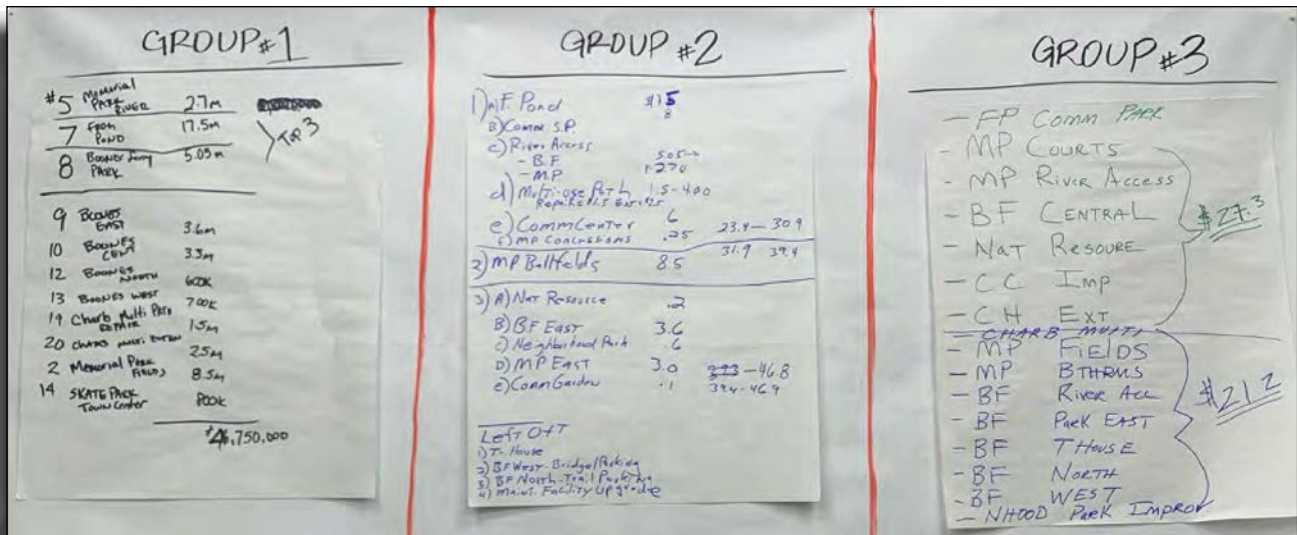 GROUP #1
#5 Memorial PARK RIVER 2.7m
7 FROG POND 17.5m
TOP 3
8 Boones Ferry PARK 5.05m
9 BOONES EAST 3.6m
10 BOONES CENT 3.3m
12 BOONES NORTH 600K
13 BOONES WEST 700K
19 Charb Multi Path REPAIR 1.5m
20 CHARB MULTI EXTEN 2.5m
2 Memorial PARK FIELDS 8.5m
14 SKATE PARK Town Center 800K
750,000
GROUP #2
1) A) F. Pond $15
8
B) Comm S.P.
C) River Access
- B.F 5.05
- MP 2.70
d) Multi-use Path 1.5-4.00
Repair 1.5
e) Comm Center 6 23.4 - 30.9
F) MP Concessions .25
31.9 39.4
2) MP Ballfields 8.5
3) A) Nat Resource .2
B) BF East 3.6
C) Neighborhood Park .6
D) MP EAST 3.0 - 46.8
e) Comm Garden .1 39.4-46.9
Left Off
1) T-House
2) BF West - Bridge/Parking
3) BF North - Trail Parking
4) Maint. Facility Upgrade
GROUP #3
- FP Comm PARK
- MP COURTS
- MP River Access
- BF CENTRAL
$27.3
- Nat RESOURE
- CC Imp
- CH EXT
- CHARB MULTI
- MP FIELDS
- MP BTHRMS
- BF River Acc
$21.2
- BF Park EAST
- BF T House
- BF NORTH
- BF WEST
- NHOOD Park IMPROV